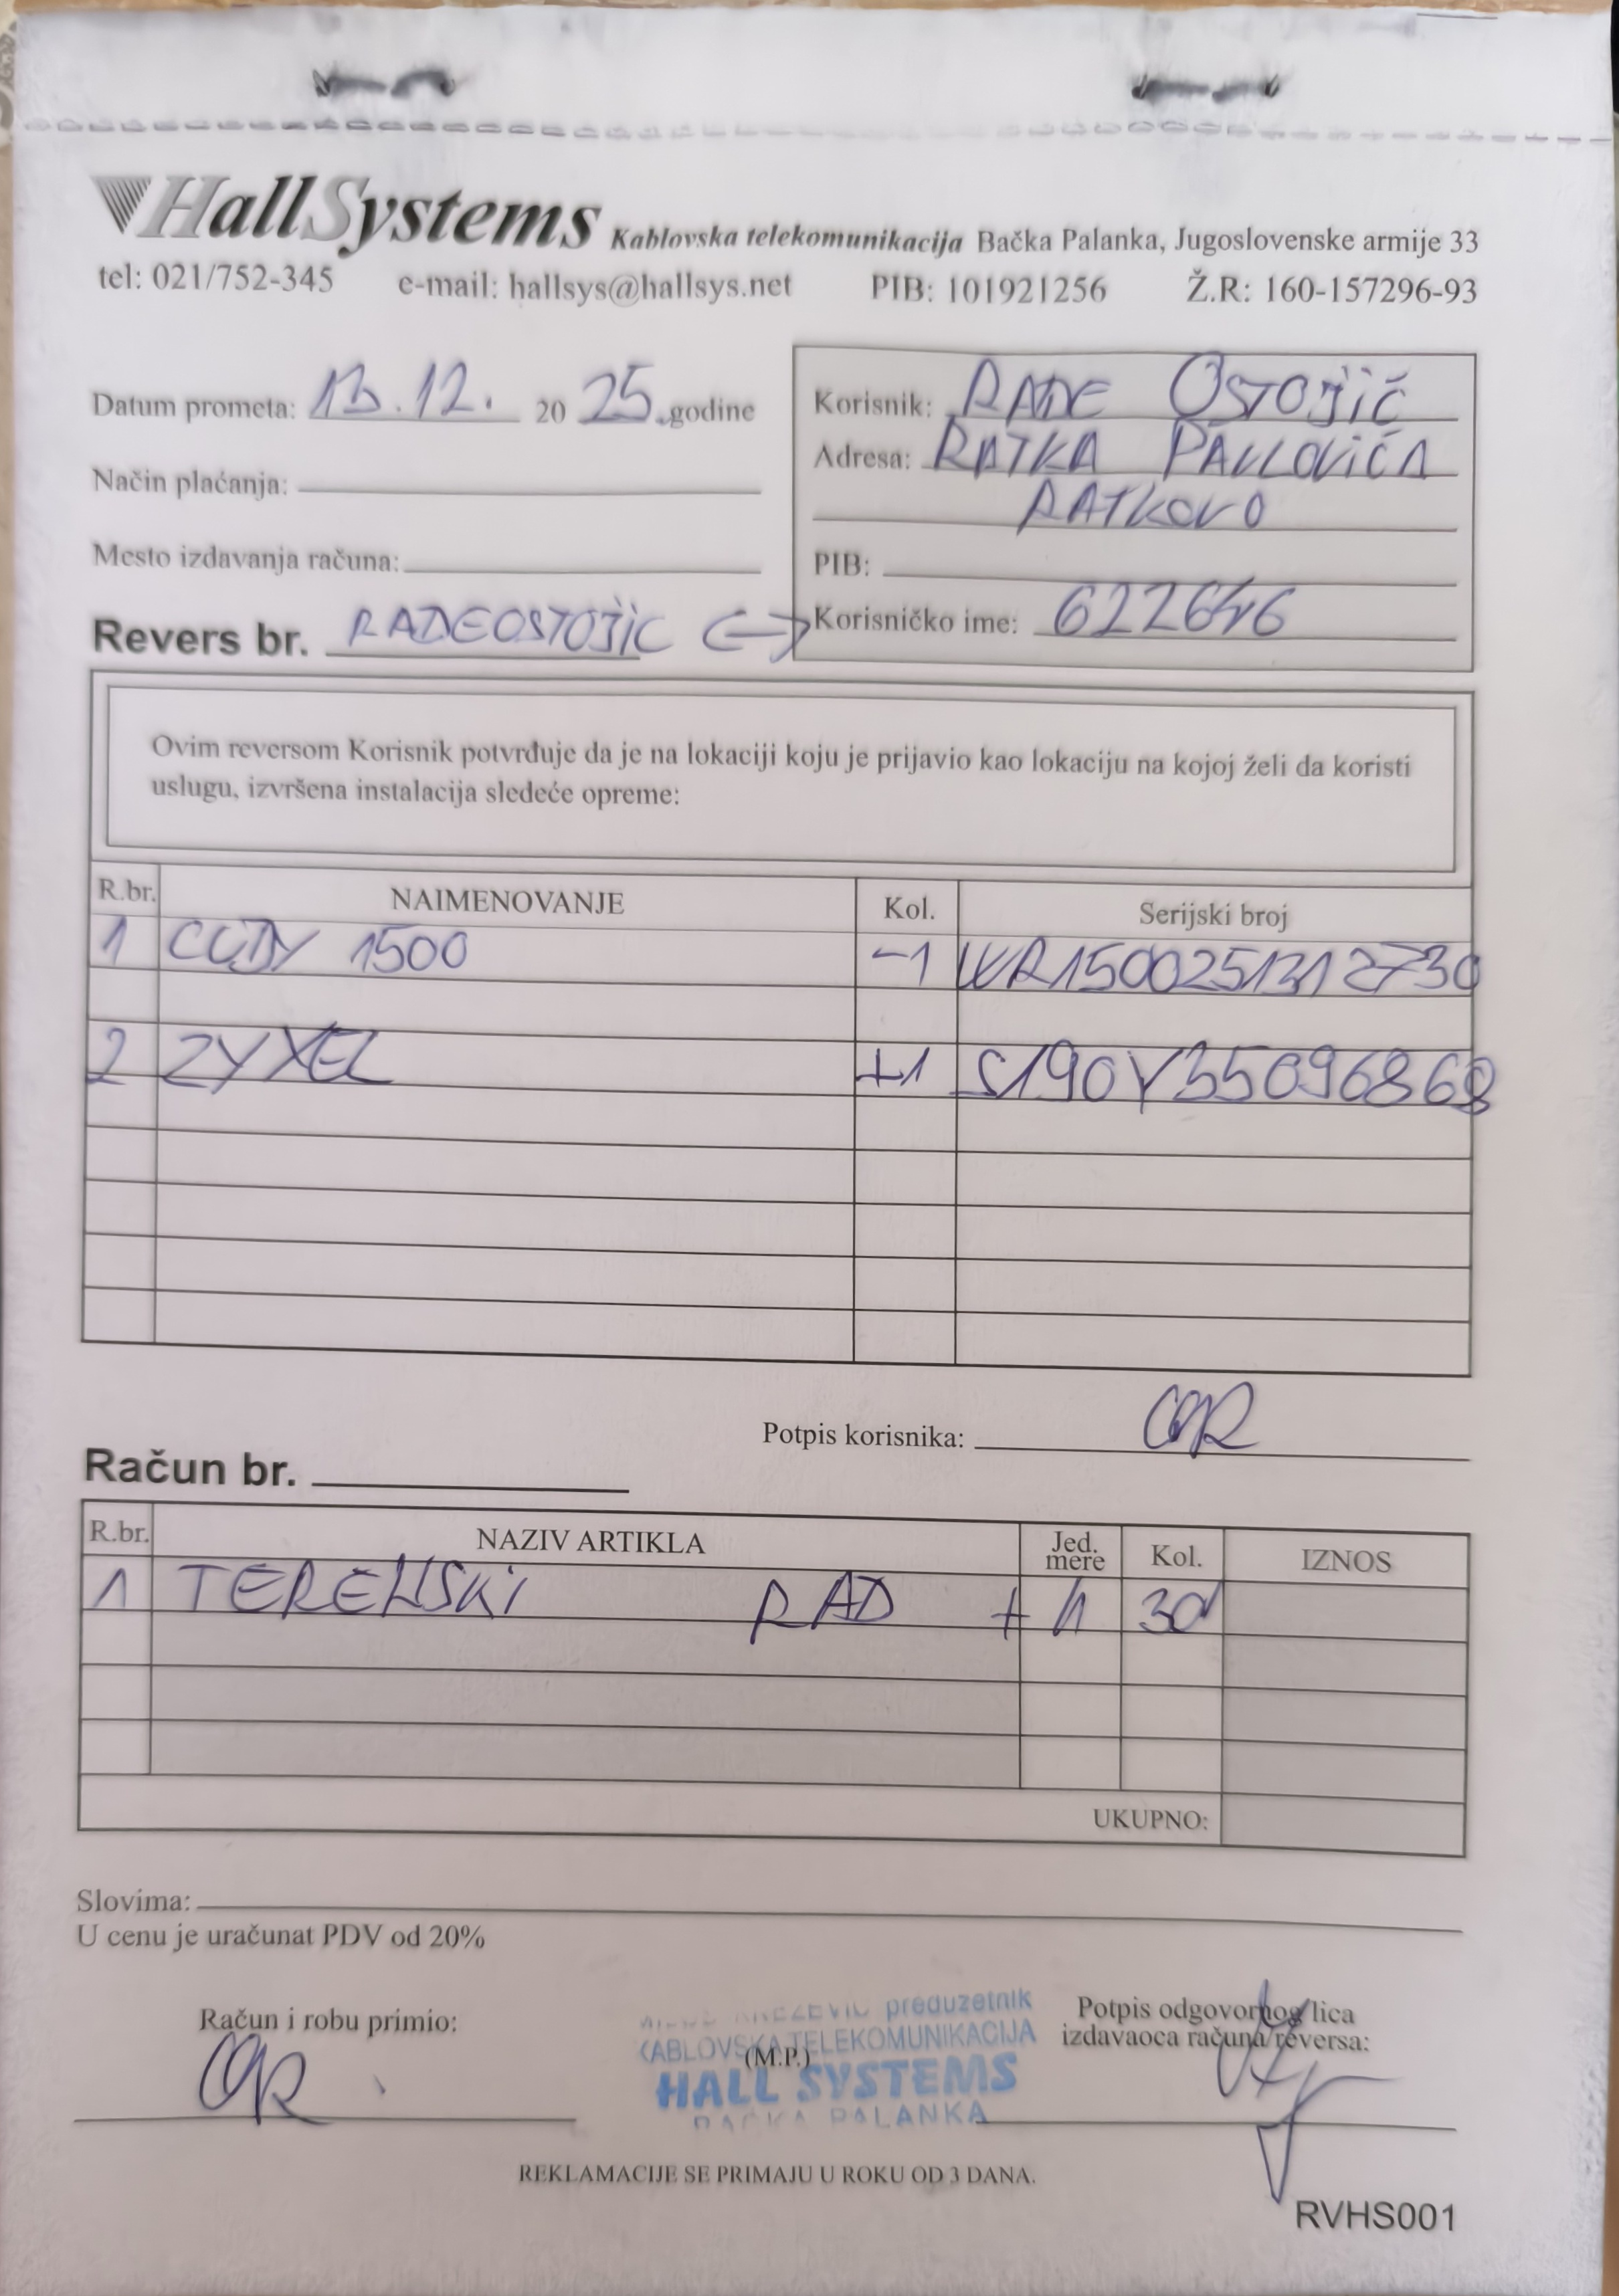 HallSystems Kablovska telekomunikacija Bačka Palanka, Jugoslovenske armije 33
tel: 021/752-345 e-mail: hallsys@hallsys.net PIB: 101921256 Ž.R: 160-157296-93
Datum prometa: 13.12. 20 25. godine
Način plaćanja:
Mesto izdavanja računa:
Revers br. RADEOSTOJIC <->
Korisnik: RADE OSTOJIĆ
Adresa: RATKA PAVLOVIĆA
RATKOVO
PIB:
Korisničko ime: 622646
Ovim reversom Korisnik potvrđuje da je na lokaciji koju je prijavio kao lokaciju na kojoj želi da koristi
uslugu, izvršena instalacija sledeće opreme:
R.br. NAIMENOVANJE Kol. Serijski broj
1 CUDY 1500 -1 WR1500251312730
2 ZYXEL +1 S190Y35096868
Potpis korisnika:
Račun br.
R.br. NAZIV ARTIKLA Jed. mere Kol. IZNOS
1 TERENSKI RAD + 1 30
UKUPNO:
Slovima:
U cenu je uračunat PDV od 20%
Račun i robu primio:
preduzetnik
KABLOVSKA TELEKOMUNIKACIJA
(M.P.)
HALL SYSTEMS
BAČKA PALANKA
Potpis odgovornog lica
izdavaoca računa/reversa:
REKLAMACIJE SE PRIMAJU U ROKU OD 3 DANA.
RVHS001